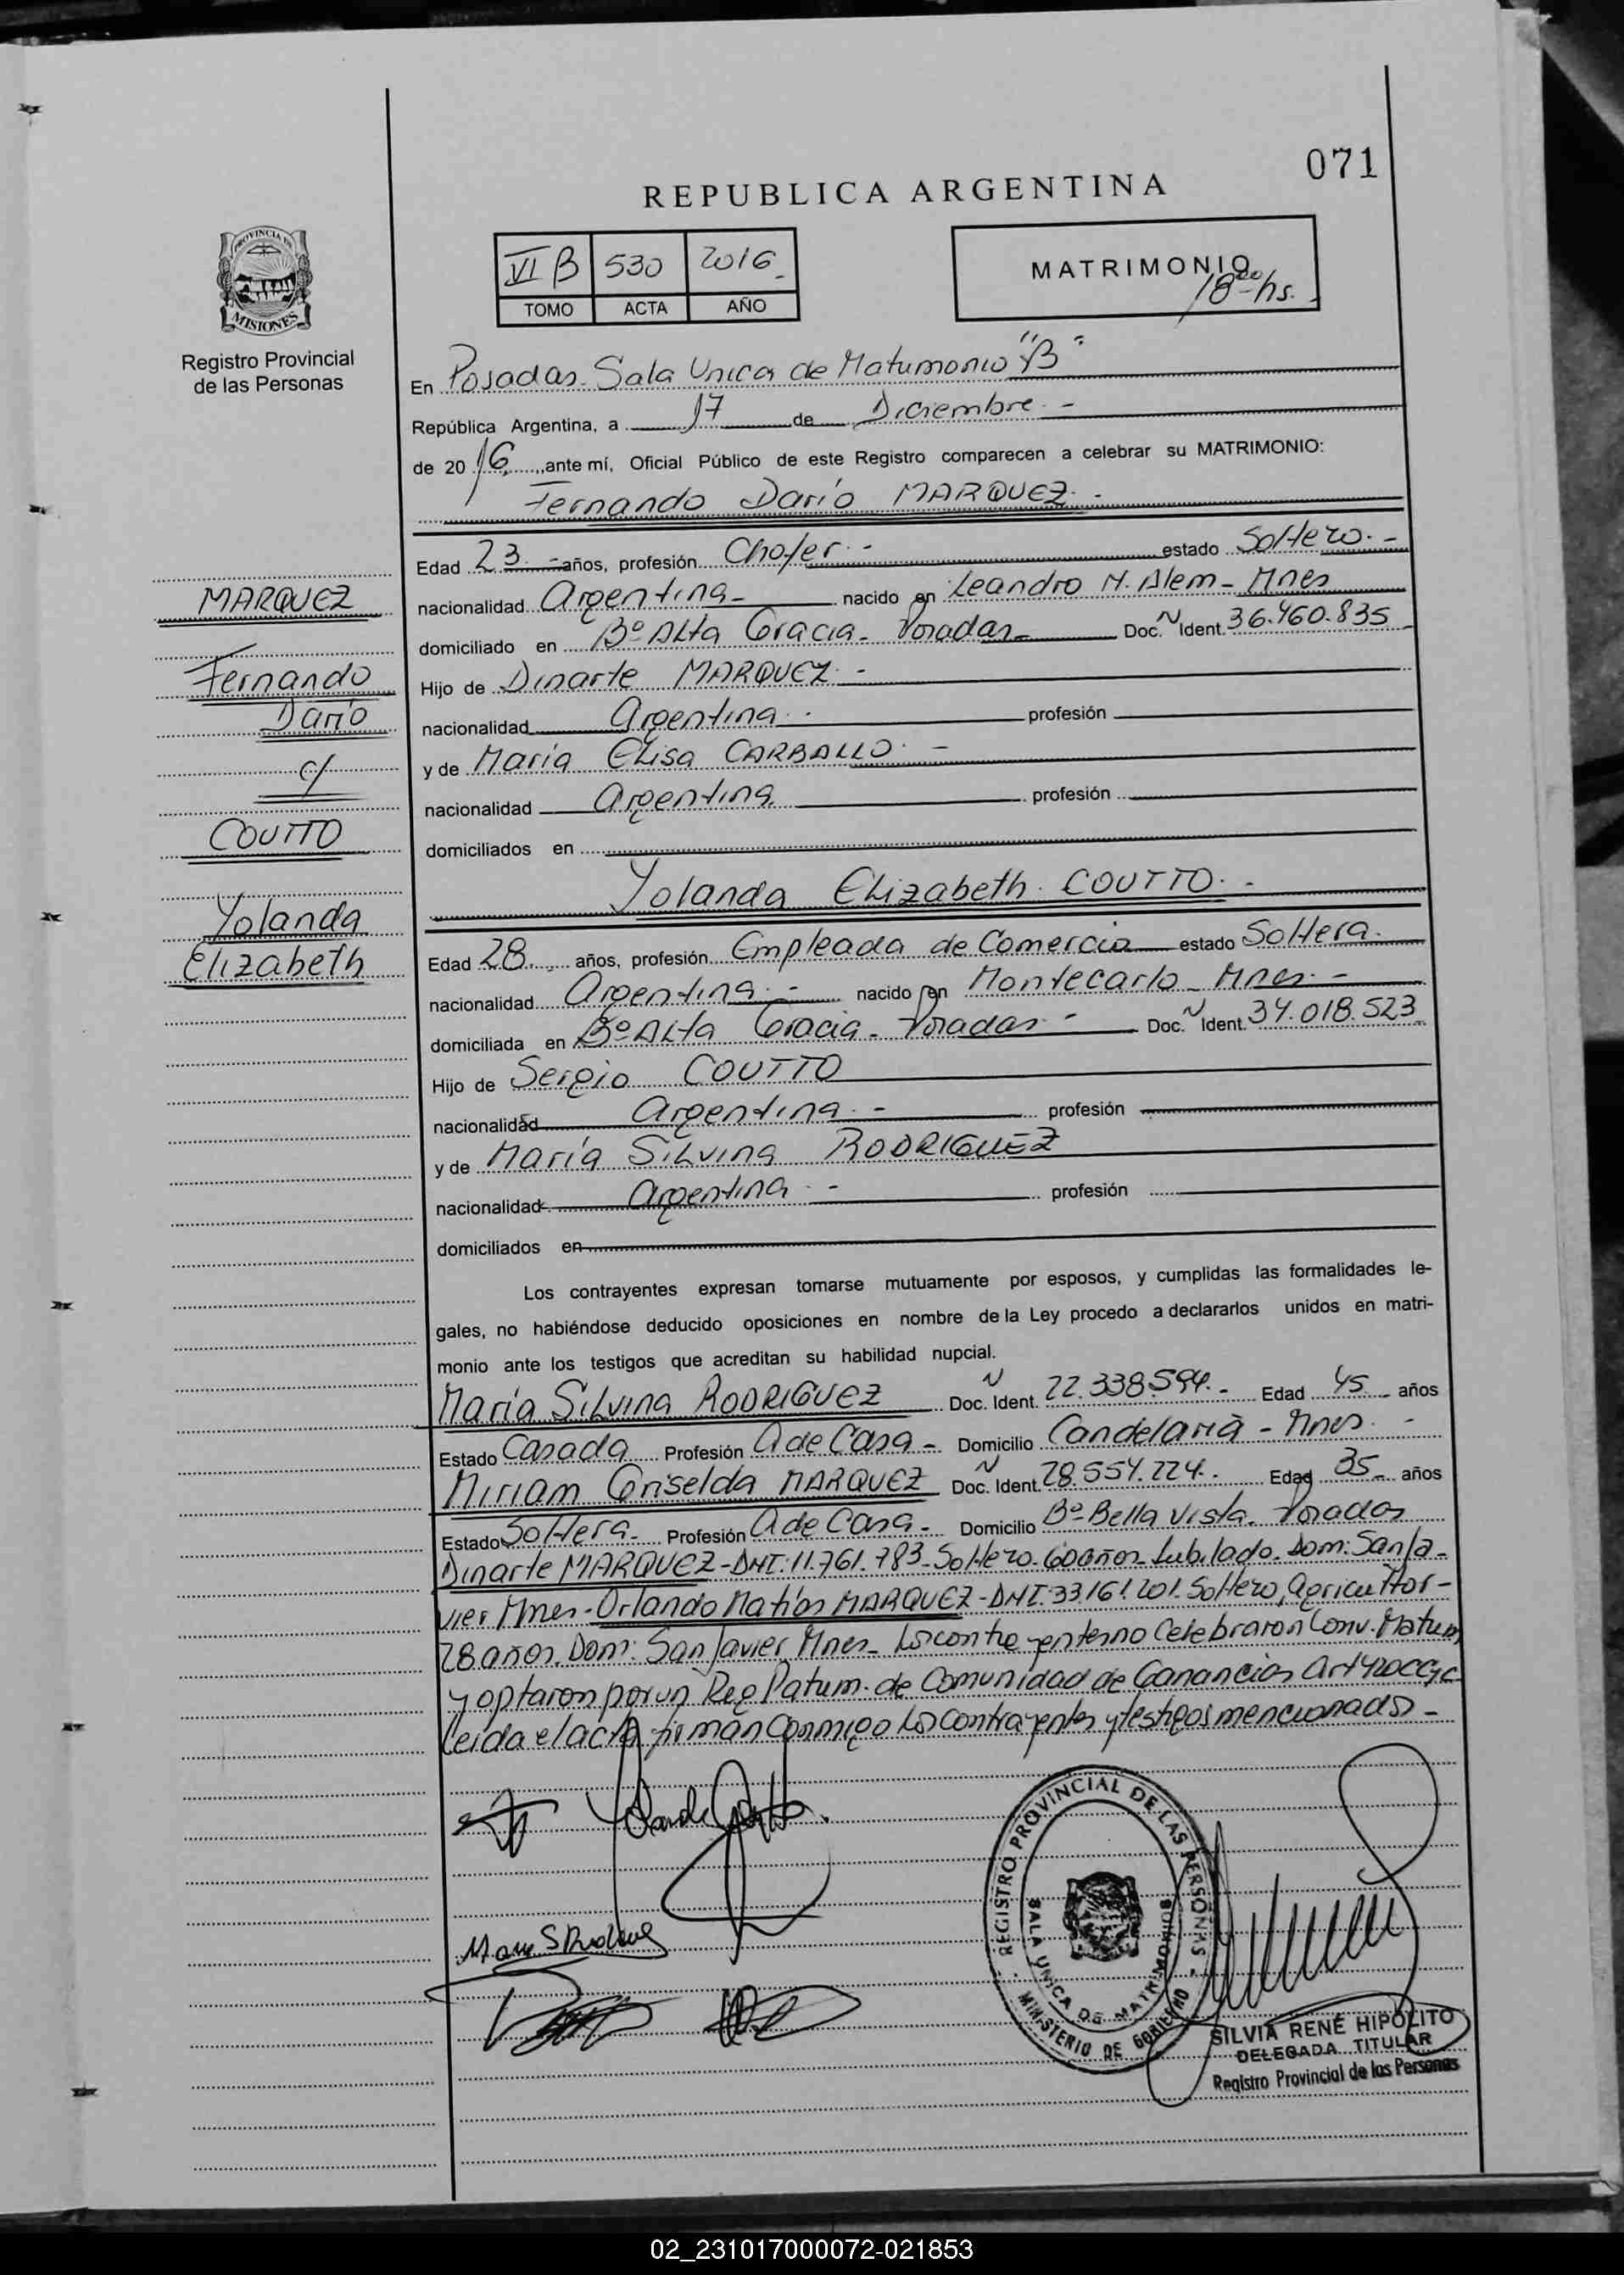 071
REPUBLICA ARGENTINA
VI B 530 2016
TOMO ACTA AÑO
MATRIMONIO
18 00 hs.
PROVINCIA DE
MISIONES
Registro Provincial
de las Personas
En Posadas. Sala Unica de Matrimonio "B"
República Argentina, a 17 de Diciembre. -
de 2016, ante mí, Oficial Público de este Registro comparecen a celebrar su MATRIMONIO:
Fernando Darío MARQUEZ. -
Edad 23 - años, profesión Chofer. - estado Soltero. -
nacionalidad Argentina - nacido en Leandro N. Alem - Mnes
domiciliado en Bº Alta Gracia - Posadas Doc. N Ident. 36.460.835
Hijo de Dinarte MARQUEZ. -
nacionalidad Argentina. profesión
y de María Elisa CARBALLO. -
nacionalidad Argentina profesión
domiciliados en
MARQUEZ
Fernando
Darío
c/
COUTTO
Yolanda
Elizabeth
Yolanda Elizabeth COUTTO. -
Edad 28 años, profesión Empleada de Comercio estado Soltera.
nacionalidad Argentina. - nacido en Montecarlo - Mnes. -
domiciliada en Bº Alta Gracia - Posadas - Doc. N Ident. 34.018.523
Hijo de Sergio COUTTO
nacionalidad Argentina. - profesión
y de María Silvina RODRIGUEZ
nacionalidad Argentina. - profesión
domiciliados en
Los contrayentes expresan tomarse mutuamente por esposos, y cumplidas las formalidades le-
gales, no habiéndose deducido oposiciones en nombre de la Ley procedo a declararlos unidos en matri-
monio ante los testigos que acreditan su habilidad nupcial.
María Silvina RODRIGUEZ Doc. N Ident. 22.338.594. - Edad 45 años
Estado Casada Profesión A de Casa - Domicilio Candelaria - Mnes. -
Miriam Griselda MARQUEZ Doc. N Ident. 28.554.224. Edad 35 años
Estado Soltera. Profesión A de Casa. - Domicilio Bº Bella Vista. Posadas
Dinarte MARQUEZ - DNI: 11.761.783 - Soltero. 60 años. Jubilado. Dom: San Ja-
vier Mnes - Orlando Matías MARQUEZ - DNI: 33.161.201. Soltero, agricultor -
28 años. Dom: San Javier, Mnes - Los contrayentes no Celebraron Conv. Matrim
y optaron por un Reg Patrim. de Comunidad de Ganancias Art 420 CCyC
Leida el acta firman conmigo los contrayentes y testigos mencionados. -
REGISTRO PROVINCIAL DE LAS PERSONAS
SALA UNICA DE MATRIMONIOS
MINISTERIO DE GOBIERNO
SILVIA RENÉ HIPÓLITO
DELEGADA TITULAR
Registro Provincial de las Personas
02_231017000072-021853